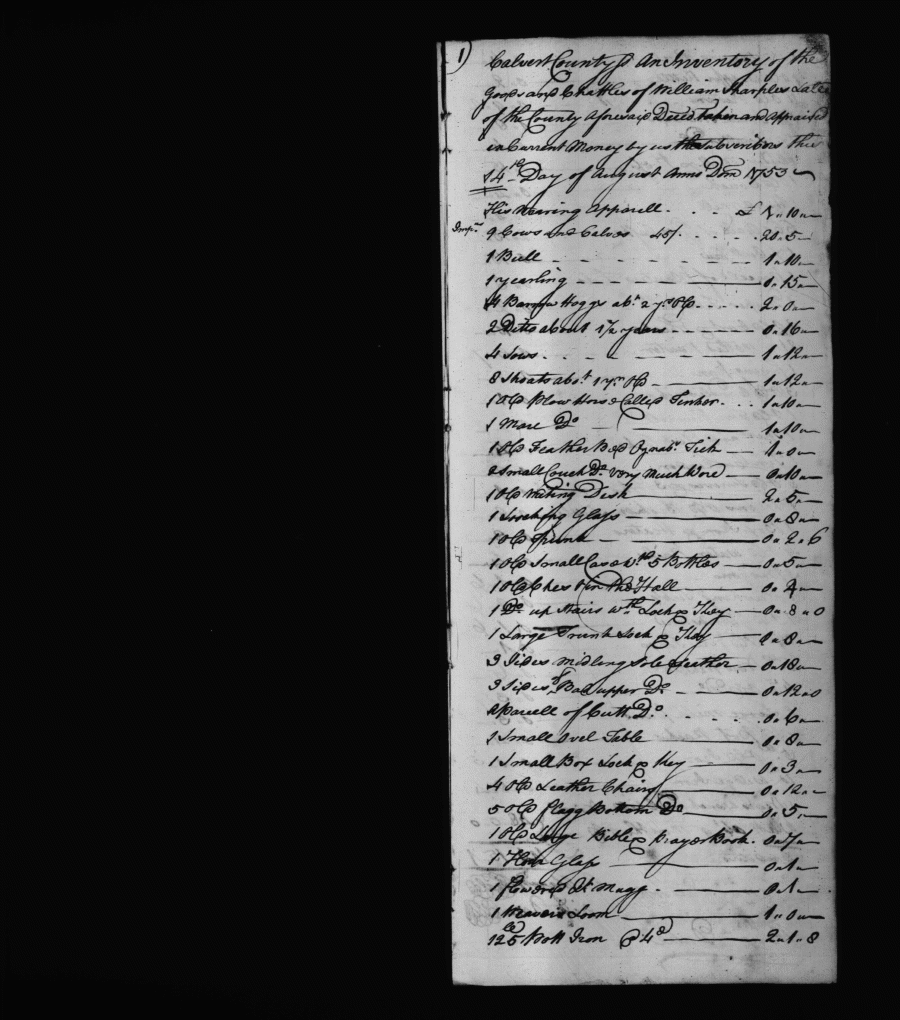 1)
Calvert County ss An Inventory of the
goods and Chattles of William Sharples Late
of the County aforesaid Deced. taken and appraised
in Current Money by us the Subscribers this
14th Day of August Anno Dom 1753
His Wearing Apparell. . . . £ 1,, 10,, —
9 Cows and Calves 45/. . . . . 20,, 5 —
1 Bull - - - - - - 1,, 10,, —
1 yearling - - - - 0,, 15,, —
4 Barrow Hoggs abt. 2 yrs. Old . . . . 2,, 0,, —
2 Ditto about 1½ years - - - - 0,, 16,, —
4 Sows - - - - - 1,, 12,, —
8 Shoats abot. 1 yr. Old - — 1,, 12,, —
1 Old Plow Horse Called Tinker . . . 1,, 10,, —
1 Mare Do — 1,, 10,, —
1 Old Feather Bed Ognabr. Tick — 1,, 0,, —
2 Small Couch Do. very Much Wore — 0,, 10,, —
1 Old Writing Desk — 2,, 5,, —
1 Looking Glass — 0,, 8,, —
1 Old Trunk — 0,, 2,, 6
1 Old Small Case wth. 5 Bottles — 0,, 5,, —
1 Old Chest in the Hall — 0,, 4,, —
1 Do. up Stairs wth Lock & Key — 0,, 8,, 0
1 Large Trunk Lock & Key — 0,, 8,, —
3 Sides midling Sole Leather — 0,, 18,, —
3 Sides of Bad upper Do. - — 0,, 12,, 0
a parcell of Cutt Do. . . . . 0,, 6,, —
1 Small Ovel Table — 0,, 8,, —
1 Small Box Lock & Key — 0,, 3,, —
4 Old Leather Chairs — 0,, 12,, —
5 Old flagg Bottom Do — 0,, 5,, —
1 Old Large Bible & prayer Book . 0,, 7,, —
1 Hour Glass — 0,, 1,, —
1 flowered Mugg - — 0,, 1,, —
1 Weavers Loom — 1,, 0,, —
125 lb Iron @ 4d — 2,, 1,, 8